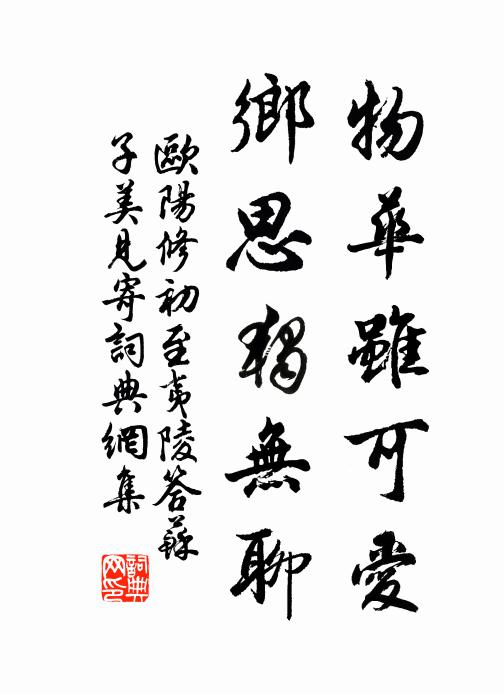 物華雖可愛
鄉思獨無聊
歐陽修初至夷陵答蘇
子美見寄詞典網集
詞典
网印